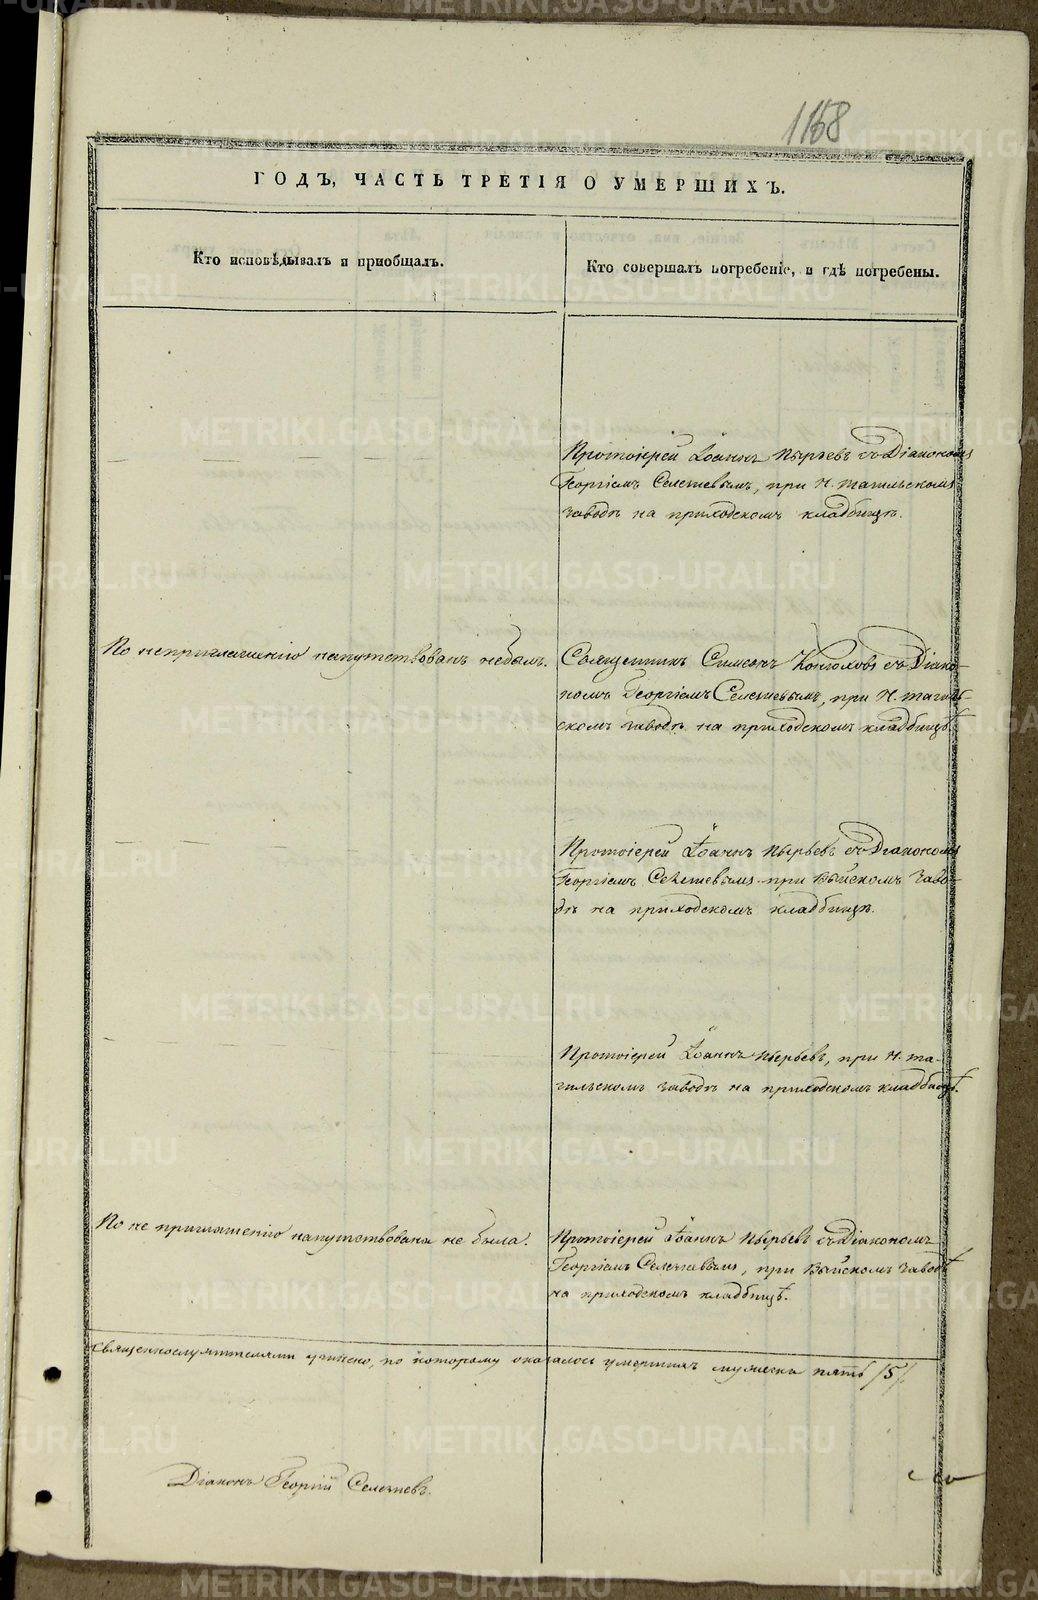 1158
ГОДЪ, ЧАСТЬ ТРЕТІЯ О УМЕРШИХЪ.
Кто исповѣдывалъ и приобщалъ.
Кто совершалъ погребеніе, и гдѣ погребены.
Протоіерей Іоаннъ Пырьевъ съ Діакономъ
Георгіемъ Селезневымъ, при Н. тагильскомъ
заводѣ на приходскомъ кладбищѣ.
По неприглашенію напутствованъ небылъ.
Священникъ Симеонъ Конюховъ съ Діако-
номъ Георгіемъ Селезневымъ, при Н. тагиль-
скомъ заводѣ на приходскомъ кладбищѣ.
Протоіерей Іоаннъ Пырьевъ съ Діакономъ
Георгіемъ Селезневымъ при Выйскомъ Заво-
дѣ на приходскомъ кладбищѣ.
Протоіерей Іоаннъ Пырьевъ, при Н. та-
гильскомъ заводѣ на приходскомъ кладбищѣ.
По не приглашенію напутствована не была.
Протоіерей Іоаннъ Пырьевъ съ Діакономъ
Георгіемъ Селезневымъ, при Выйскомъ Заводѣ
на приходскомъ кладбищѣ.
священнослужителями учинено, по которому оказалось умершихъ мужеска пять /5/.
Діаконъ Георгій Селезневъ.
METRIKI.GASO-URAL.RU